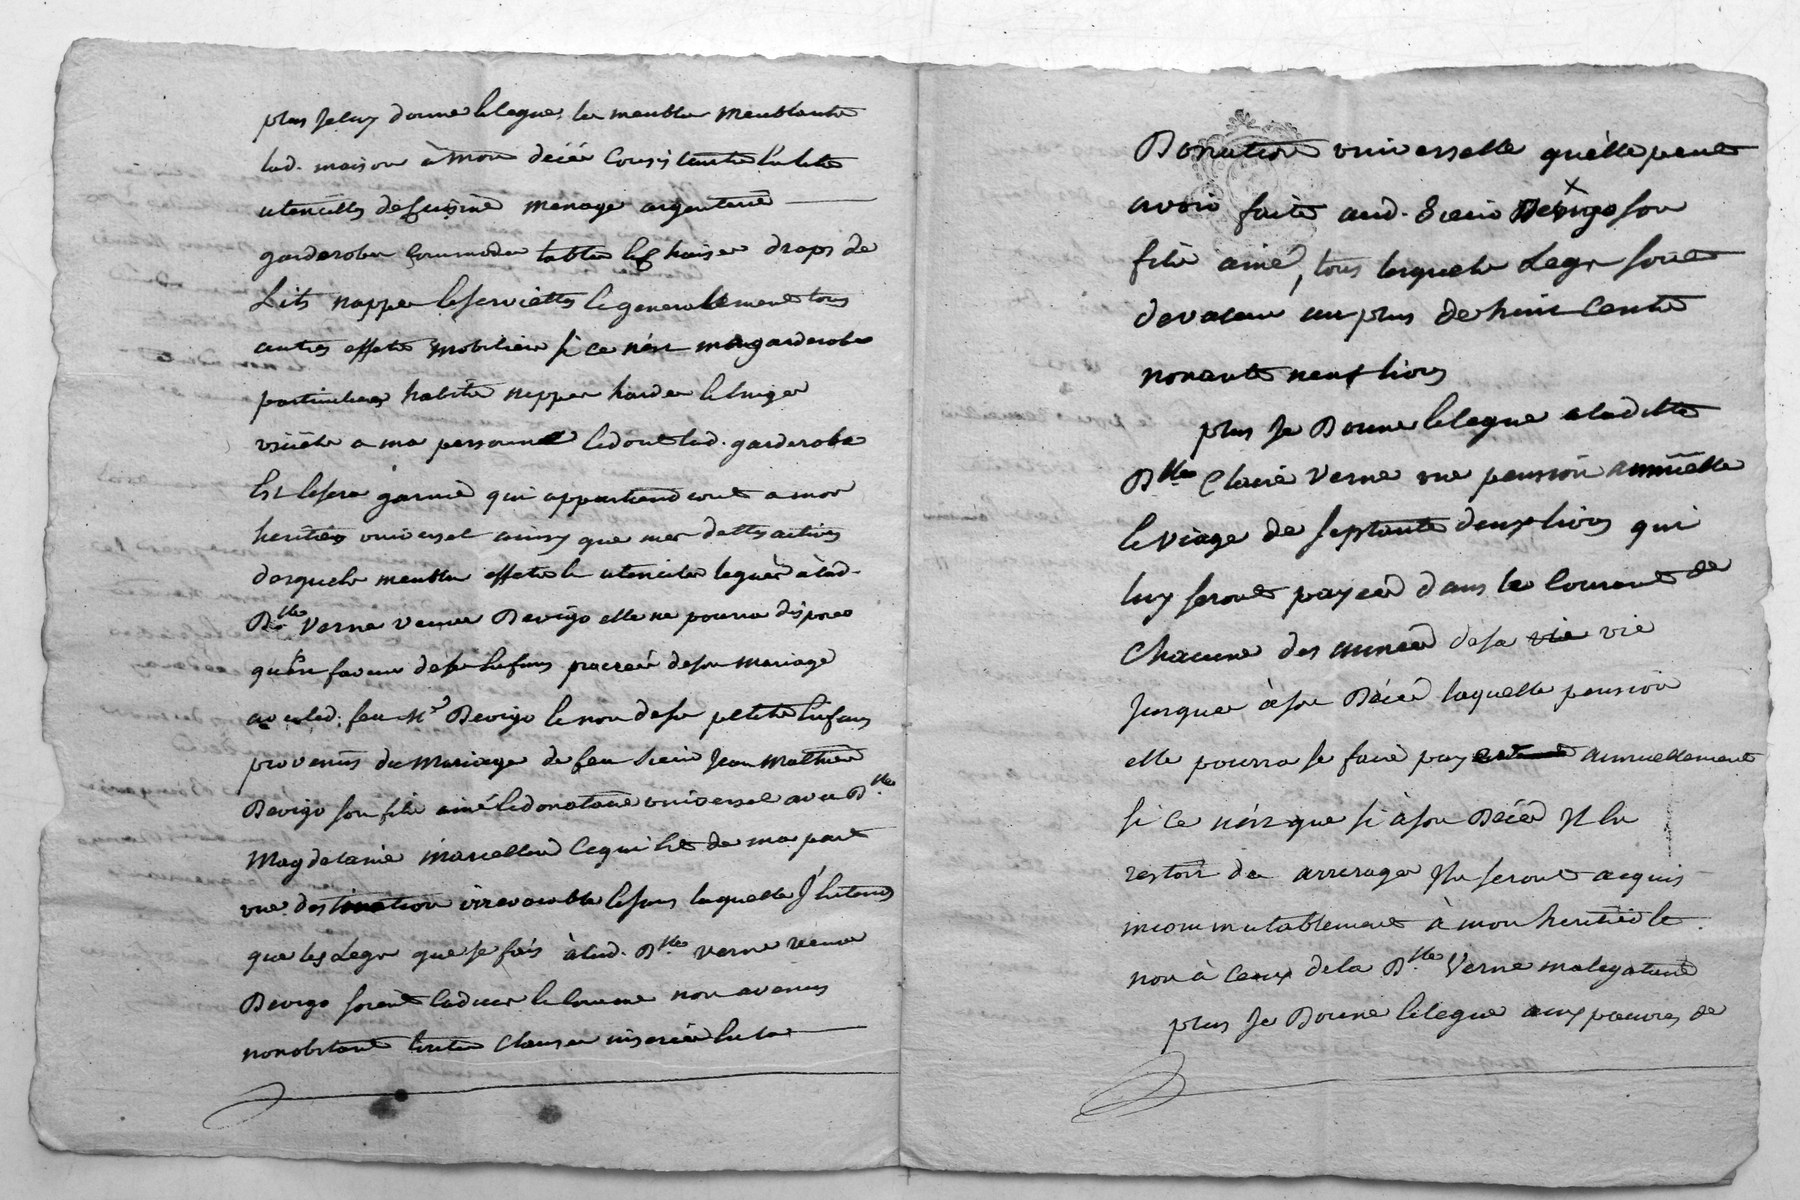 plus Je luy donne & legue les meubles meublants
lad. maison à mon décés Consistants En lits
utencilles de Cuisine menage argenterie
garderobes Commodes tables & chaises draps de
Lits nappes & serviettes & generallement tous
autres effets mobiliers si ce n'est ma garderobe
particuliere habits nippes hardes & linges
usités a ma personne & dont lad. garderobe
Est & sera garnie qui appartiendront a mon
heritier universel ainsy que mes dettes actives
desquels meubles effets & utenciles legués à lad.
Dlle Verne veuve Devigo elle ne pourra disposer
qu'En faveur de ses Enfans procréés de son mariage
avec led. feu Sr Devigo & non de ses petits Enfans
provenus du Mariage de feu sieur Jean Mathieu
Devigo son fils ainé & donataire universel avec Dlle
Magdelaine marcellin Ce qui Est de ma part
une destination irrevocable & sans laquelle J'Entens
que les Legs que Je fais à lad. Dlle Verne veuve
Devigo soient Caducs & Comme non avenus
nonobstant toutes Clauses inserées
Donation universelle qu'elle peut
avoir faite aud. Sieur Devigo son
fils ainé, tous lesquels Legs sont
de valeur au plus de huit Cents
nonante neuf livres
plus Je Donne & legue a laditte
Dlle Claire Verne une pension annuelle
& viagere de septante deux livres qui
luy seront payées dans le Courant de
Chacune des années de sa vie vie
Jusques à son Décéd laquelle pension
elle pourra se faire payer annuellement
si ce n'est que si à son Décéd Il en
restoit des arrerages Ils seront acquis
incommutablement à mon heritier &
non à Ceux de la Dlle Verne ma legataire
plus Je Donne & legue aux pauvres de